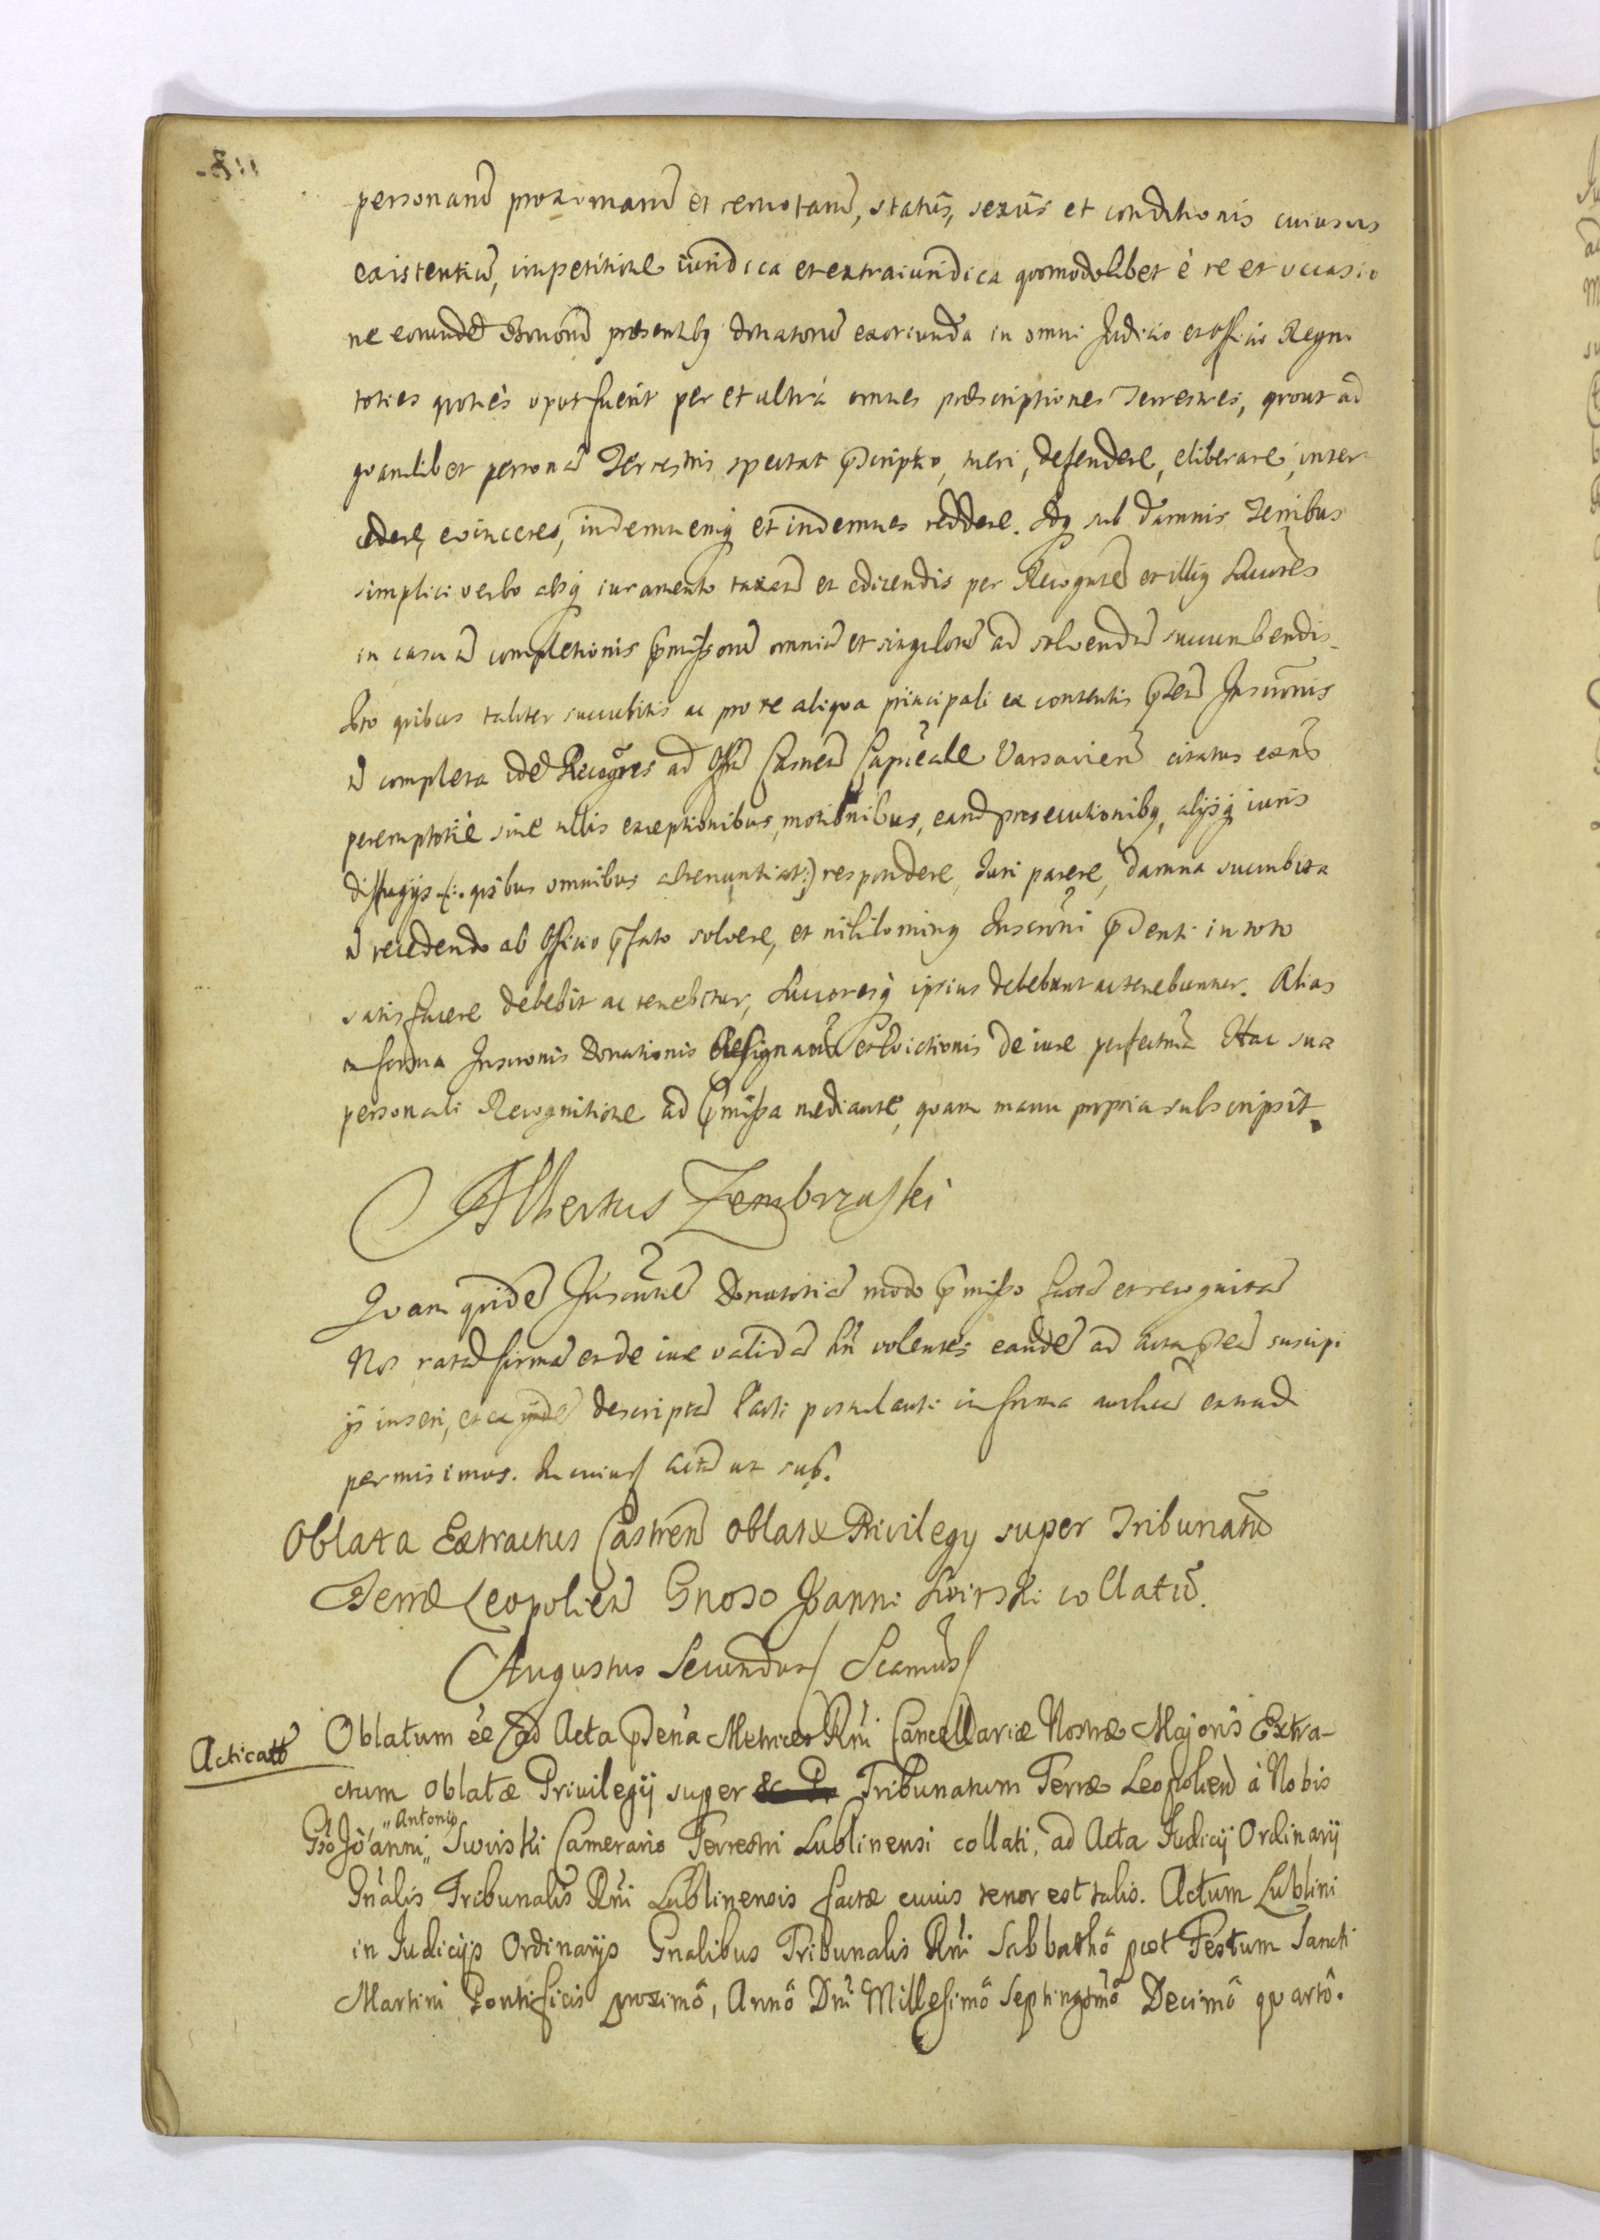 personarũ proximarũ et remotarũ, statûs, sexûs et conditionis cuiusvis
existentiũ, impetitione iuridica et extraiuridica quomodolibet è re et occasio
ne eorundẽ Bonorũ praesentibq donatorũ exoriunda in omni Judicio et Officio Regni
toties quoties opus fuerit per et ultrà omnes praescriptiones Terrestres, prout ad
quamlibet personã Terrestris spectat pscriptio, tueri, defendere, eliberare, inter-
cedere, evincere, indemnemq et indemnes reddere. Idq sub damnis Terribus
simplici verbo absq iuramento taxatẽ et edicendis per Recogntẽ et illiq Succrẽs
in casu ñ completionis pmissorũ omniũ et singulorũ ad solvendũ succumbendis
Pro quibus taliter succubitis ac pro re aliqua principali ex contentis pntis Inscronis
ñ completa idẽ Recogñes ad Offũ Castreñ Capiẽale Varsavien citatus eãnt
peremptoriè sine ullis exceptionibus, motionibus, eand prosecutionibq, alijsq iuris
diffugijs (: quibus omnibus abrenuntiat :) respondere, Iuri parere, damna succubita
ñ recedendo ab Officio pfato solvere, et nihilominq Inscroni pdenti in toto
satisfacere debebit ac tenebitur, Succoresq ipsius debebunt ac tenebuntur. Alias
in forma Inscronis Donationis Resignaonis et Evictionis de iure perfectma Hac sua
personali Recognitione ad pmissa mediante, quam manu propria subscripsit.
Albertus Zembrzuski
Quam quidẽ Inscronẽ Donatoriã modo pmisso factã et recognitã
Nos ratã firmã et de iure validã hri volentes eandẽ ad Acta pntia suscipi
ijs inseri, et ex ijsdẽ descriptã Parti postulanti in forma authẽa extradi
permisimus. In cuius Actũ ut sup.
Oblata Extractus Castren oblatæ Privilegij super Tribunatũ
Terræ Leopolien Gnoso Joanni Swirski collatũ.
Augustus Secundus Scamus
Acticatt
Oblatum ẽe ad Acta pntia Metrices Rni Cancellariæ Nostræ Majoris Extra-
ctum oblatæ Privilegij super Tribunatum Terræ Leopolien à Nobis
Gso Joanni „Antonio„ Swirski Camerario Terrestri Lublinensi collati, ad Acta Judicij Ordinarij
Gnalis Tribunalis Rni Lublinensis factæ cuius tenor est talis. Actum Lublini
in Iudicijs Ordinarijs Gnalibus Tribunalis Rni Sabbathô post Festum Sancti
Martini Pontificis proximô, Annô Dni Millesimô Septingtmô Decimô quartô.